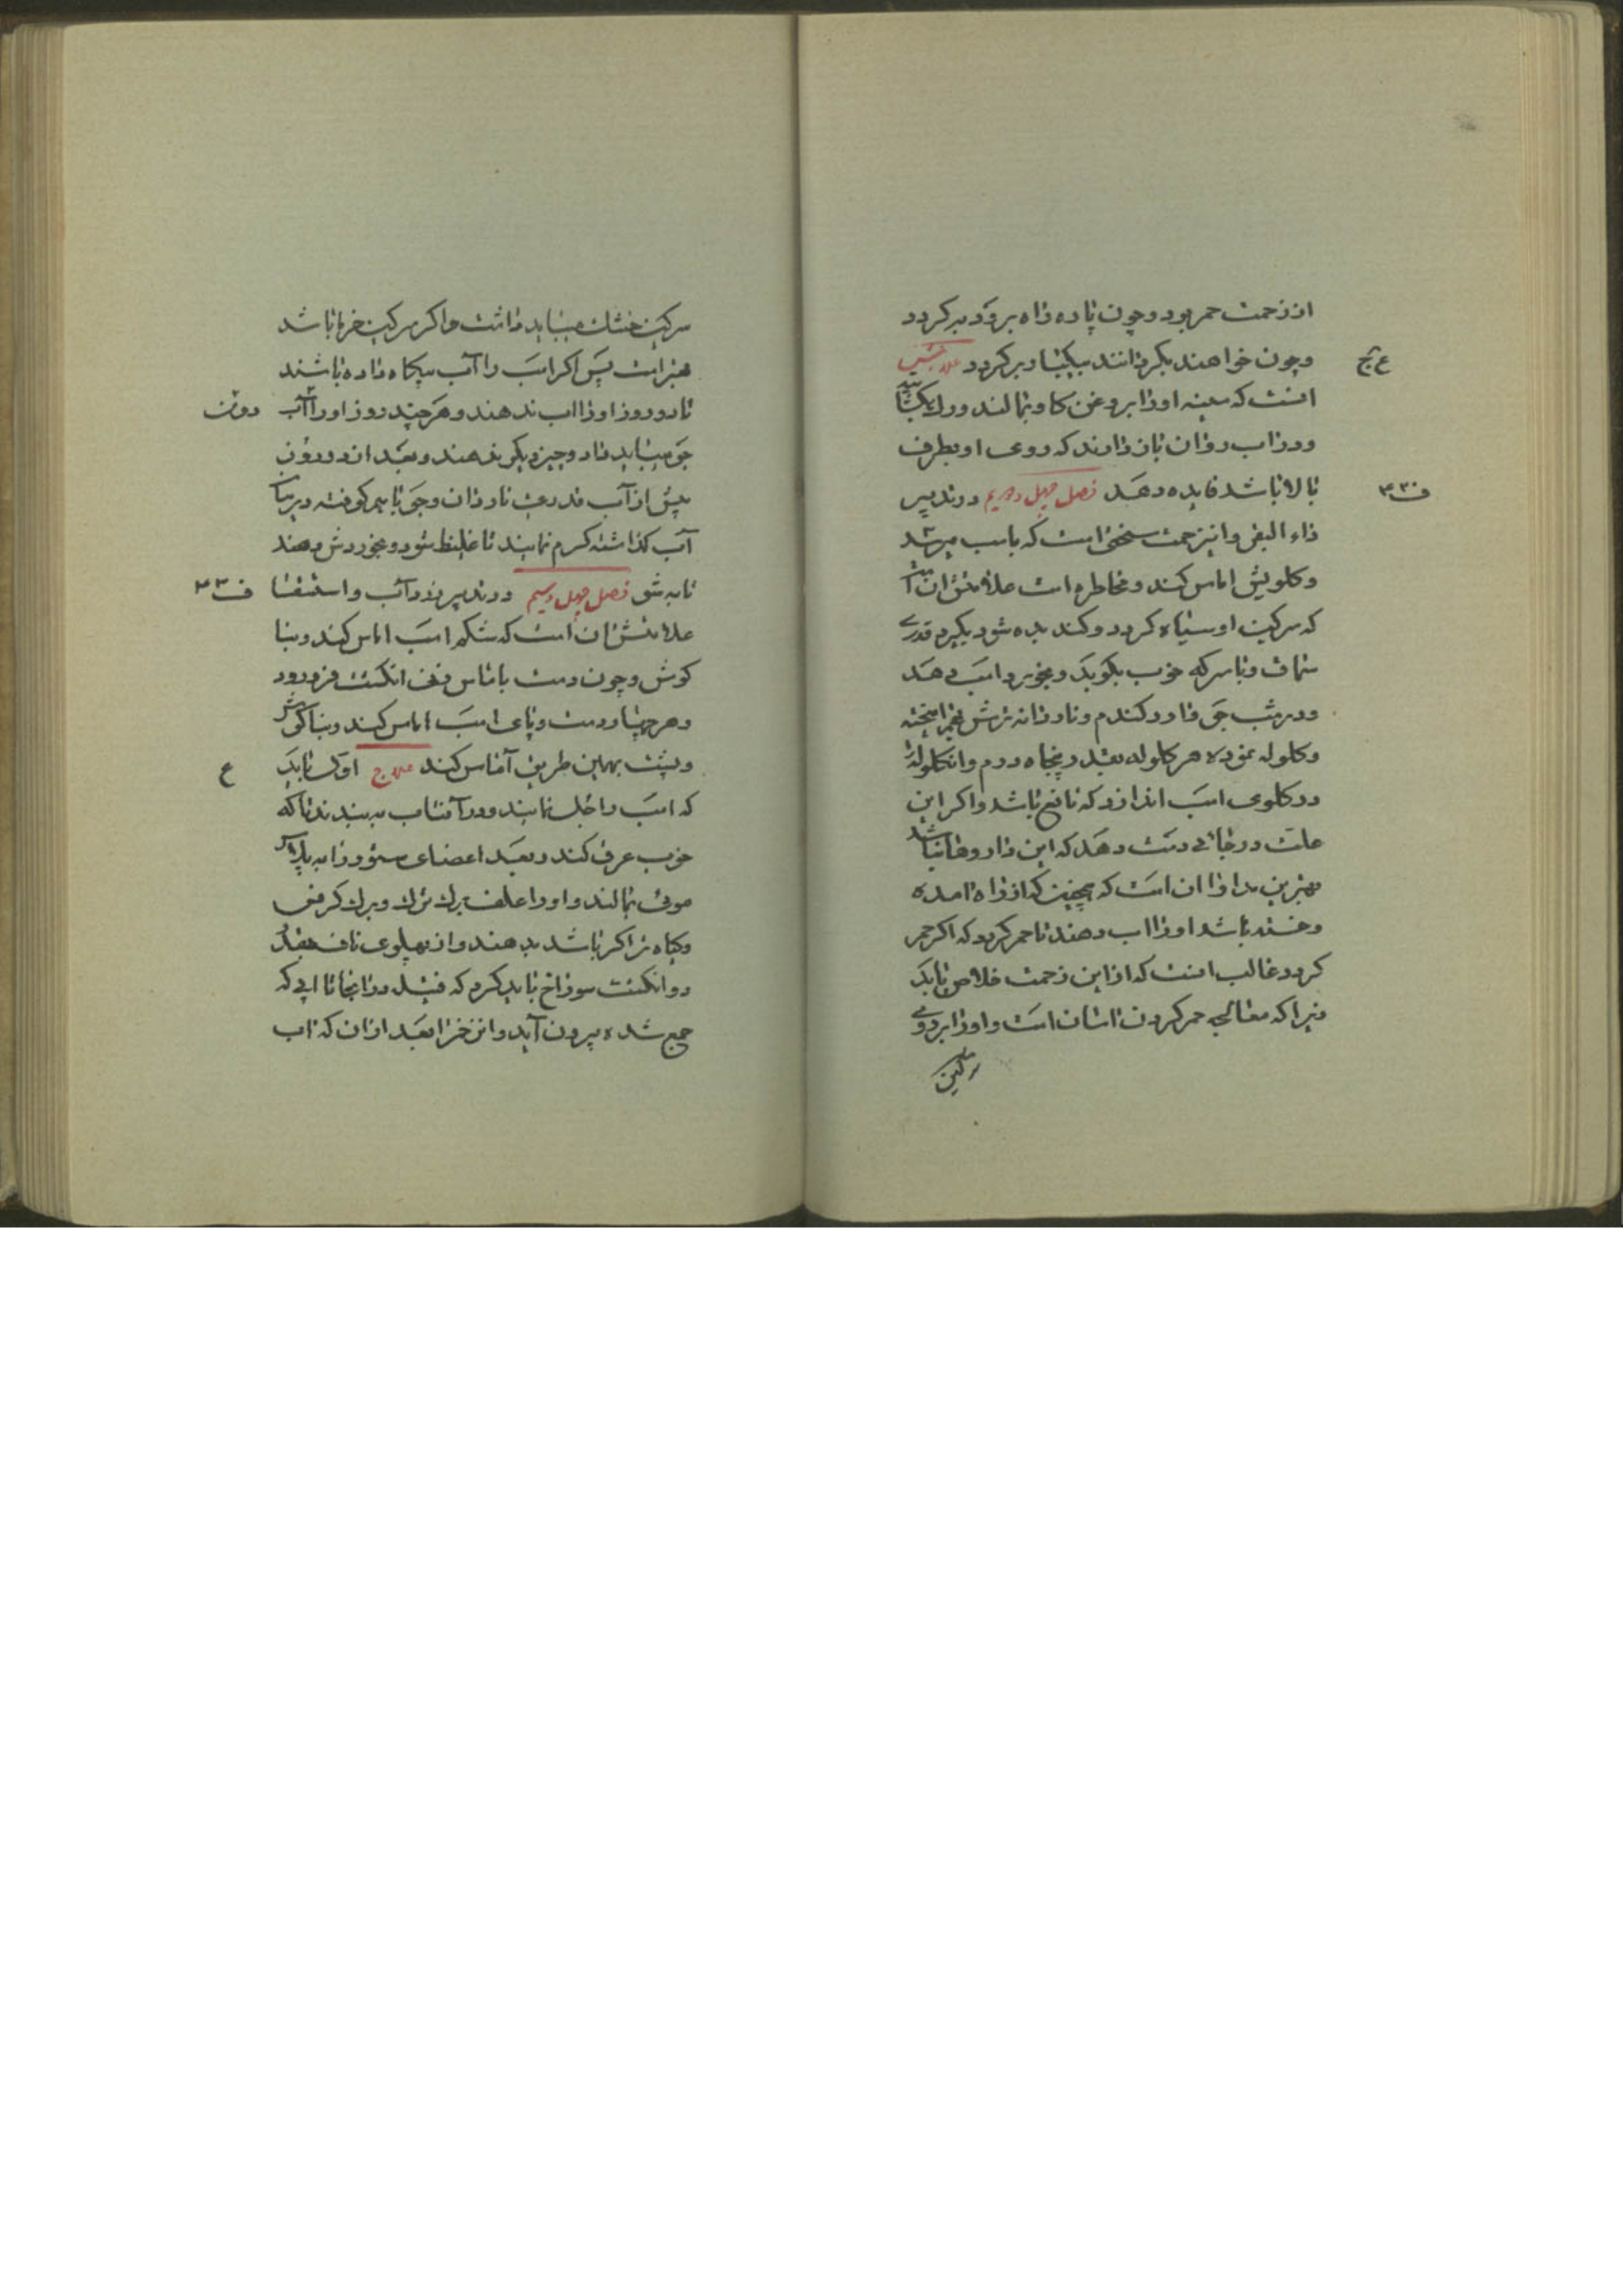 از زحمت حمر بود و چون پاره راه برود بر کردد
وچون خواهند بکردانند بیکپا و بر کردد علاجش
ع ج
انست که سینه اورا بروغن کاو بمالند و رک یکشاید
ودر اب روان بان دارند که روی او بطرف
بالا باشد فایده دهد فصل چهل دویم در تدبیر
ف ۴۲
داء البقر و این زحمت سختی است که باسب میرسد
وکلویش اماس کند و مخاطره است علامتش ان است
که سرکین او سیاه کردد و کند بده شود بکیرد قدری
سماق و با سرکه خوب بکوبد و بخورد اسب دهد
ودر شب جو و ارد کندم و ناردانه ترش بهم امیخته
وکلوله نموده هر کلوله بقدر پنجاه درم وان کلوله را
در کلوی اسب اندازد که نافع باشد و اکر این
علت در جائی دست دهد که این داروها نباشد
بهترین مداوا ان است که همچنین که از راه امده
وخسته باشد اورا اب دهند تا حمر کردد که اکر حمر
کردد غالب انست که از این زحمت خلاص یابد
زیرا که معالجه حمر کردن اسان است و اورا بر روی
سرکین
سرکین خشک میباید داشت و اکر سرکین خر باشد
بهتر است پس اکر اسب را آب بیکاه داده باشند
تا دو روز اورا اب ندهند و هر چند روز اورا آب
دوقت
جو میباید داد و چیز دیکر ندهند و بعد از دو روز
پیش از آب قدری ناردان و جو با هم کوفته در میان
آب کذاشته کرم نمایند تا غلیظ شود و بخوردش دهند
تا به شو فصل چهل و سیم در تدبیر زرد آب و استسقا
ف ۴۳
علامتش ان است که شکم اسب اماس کند و بنا
کوش و چون دست باماس زنی انکشت فرو رود
وهر چهار دست و پای اسب اماس کند و بناکوش
وپشت بهمین طریق آماس کند علاج اول باید
ع
که اسب را جل نمایند و در آفتاب ببندند تا که
خوب عرق کند و بعد اعضای ستور را به پلاس
موئی بمالند و اورا علف برک ترک و برک کرفس
وکیاه تر اکر باشد بدهند و از پهلوی ناف بقدر
دو انکشت سوراخ باید کرد که فتیله در انجا تا ابی که
جمع شده بیرون آید و این خر را بعد از ان که اب